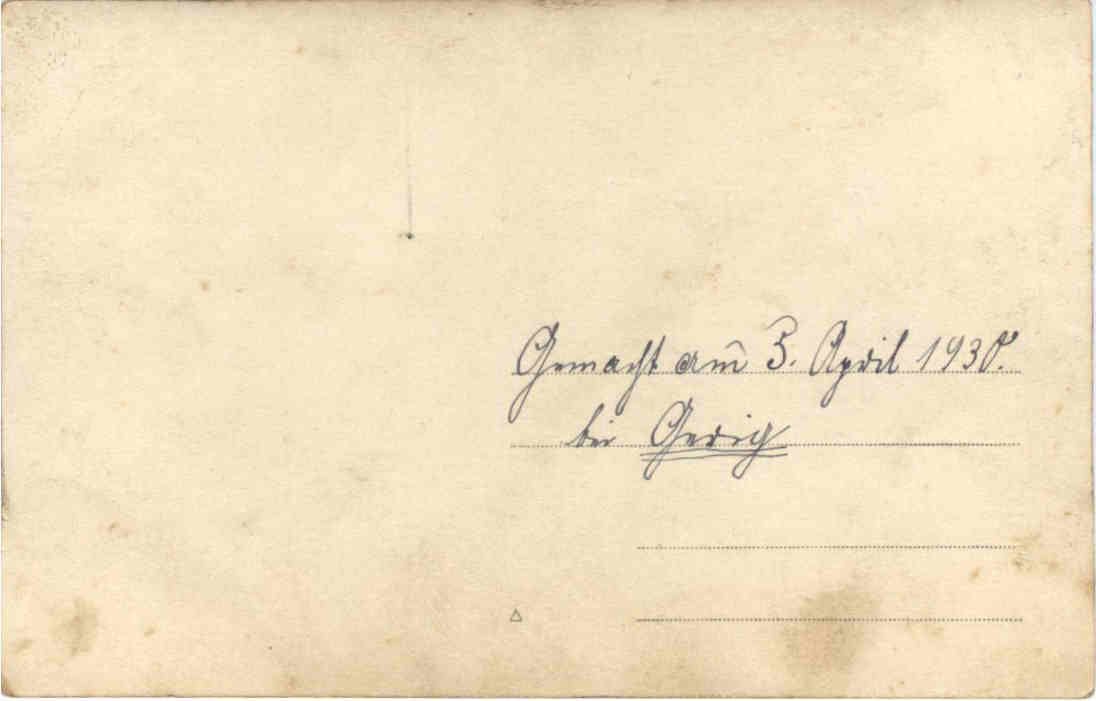 Gemacht am 3. April 1930.
bei Gerig